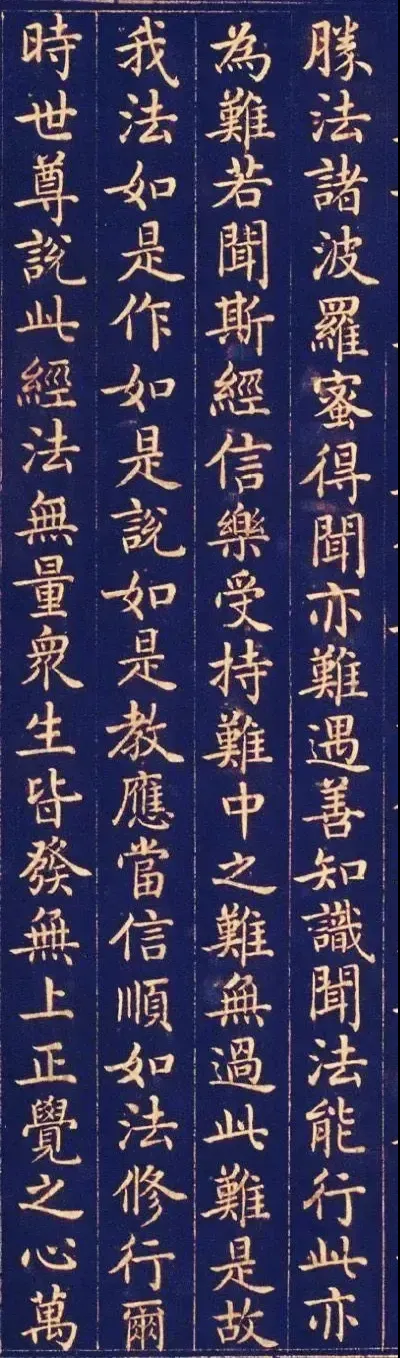 勝法諸波羅蜜得聞亦難遇善知識聞法能行此亦
為難若聞斯經信樂受持難中之難無過此難是故
我法如是作如是說如是教應當信順如法修行爾
時世尊說此經法無量眾生皆發無上正覺之心萬